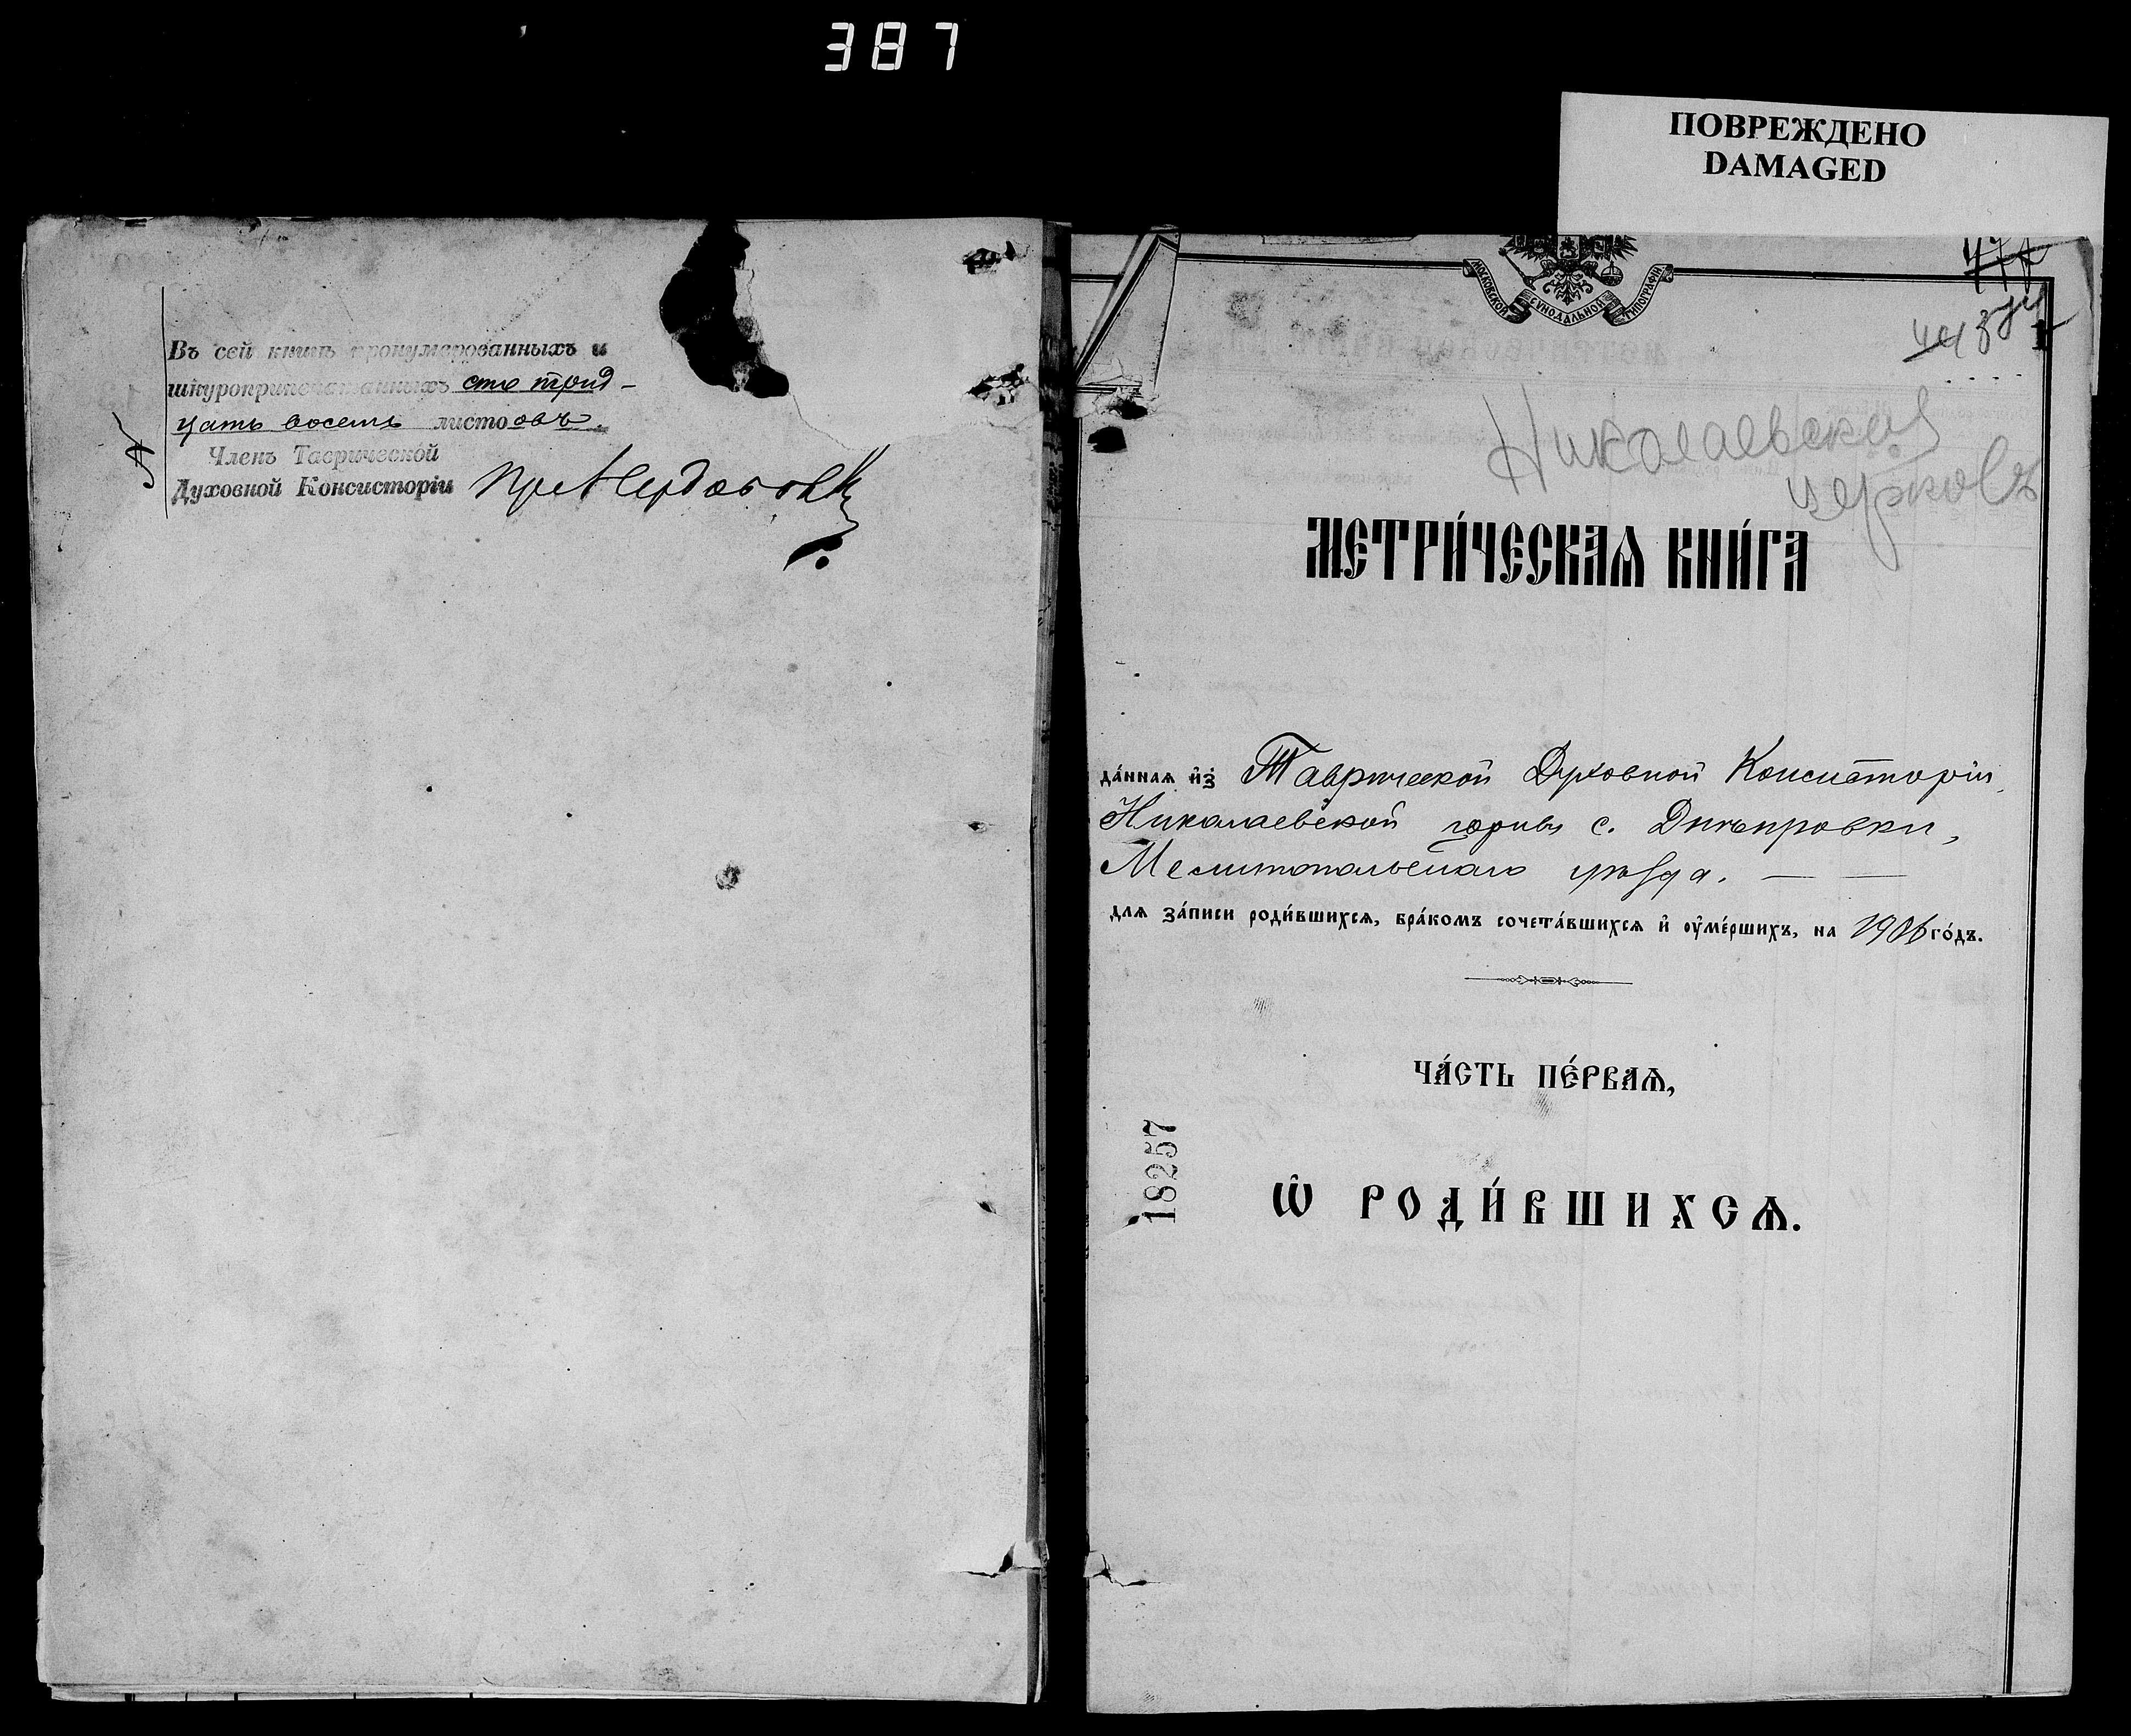 387
ПОВРЕЖДЕНО
DAMAGED
Въ сей книгѣ пронумерованныхъ и
шнуроприпечатанныхъ сто трид-
цать восемь листовъ.
Членъ Таврической
Духовной Консисторіи
МОСКОВСКОЙ СѴНОДАЛЬНОЙ ТИПОГРАФІИ
Николаевская
церковь
МЕТРИ́ЧЕСКАѦ КНИ́ГА
да́ннаѧ и҆з̾ Таврической Духовной Консисторіи,
Николаевской церкви с. Днѣпровки,
Мелитопольскаго уѣзда. — —
длѧ за́писи роди́вшихсѧ, бра́комъ сочета́вшихсѧ и҆ оу҆ме́ршихъ, на 1906 го́дъ.
ЧА́СТЬ ПЕ́РВАѦ,
18257
Ѡ҆ РОДИ́ВШИХСѦ.